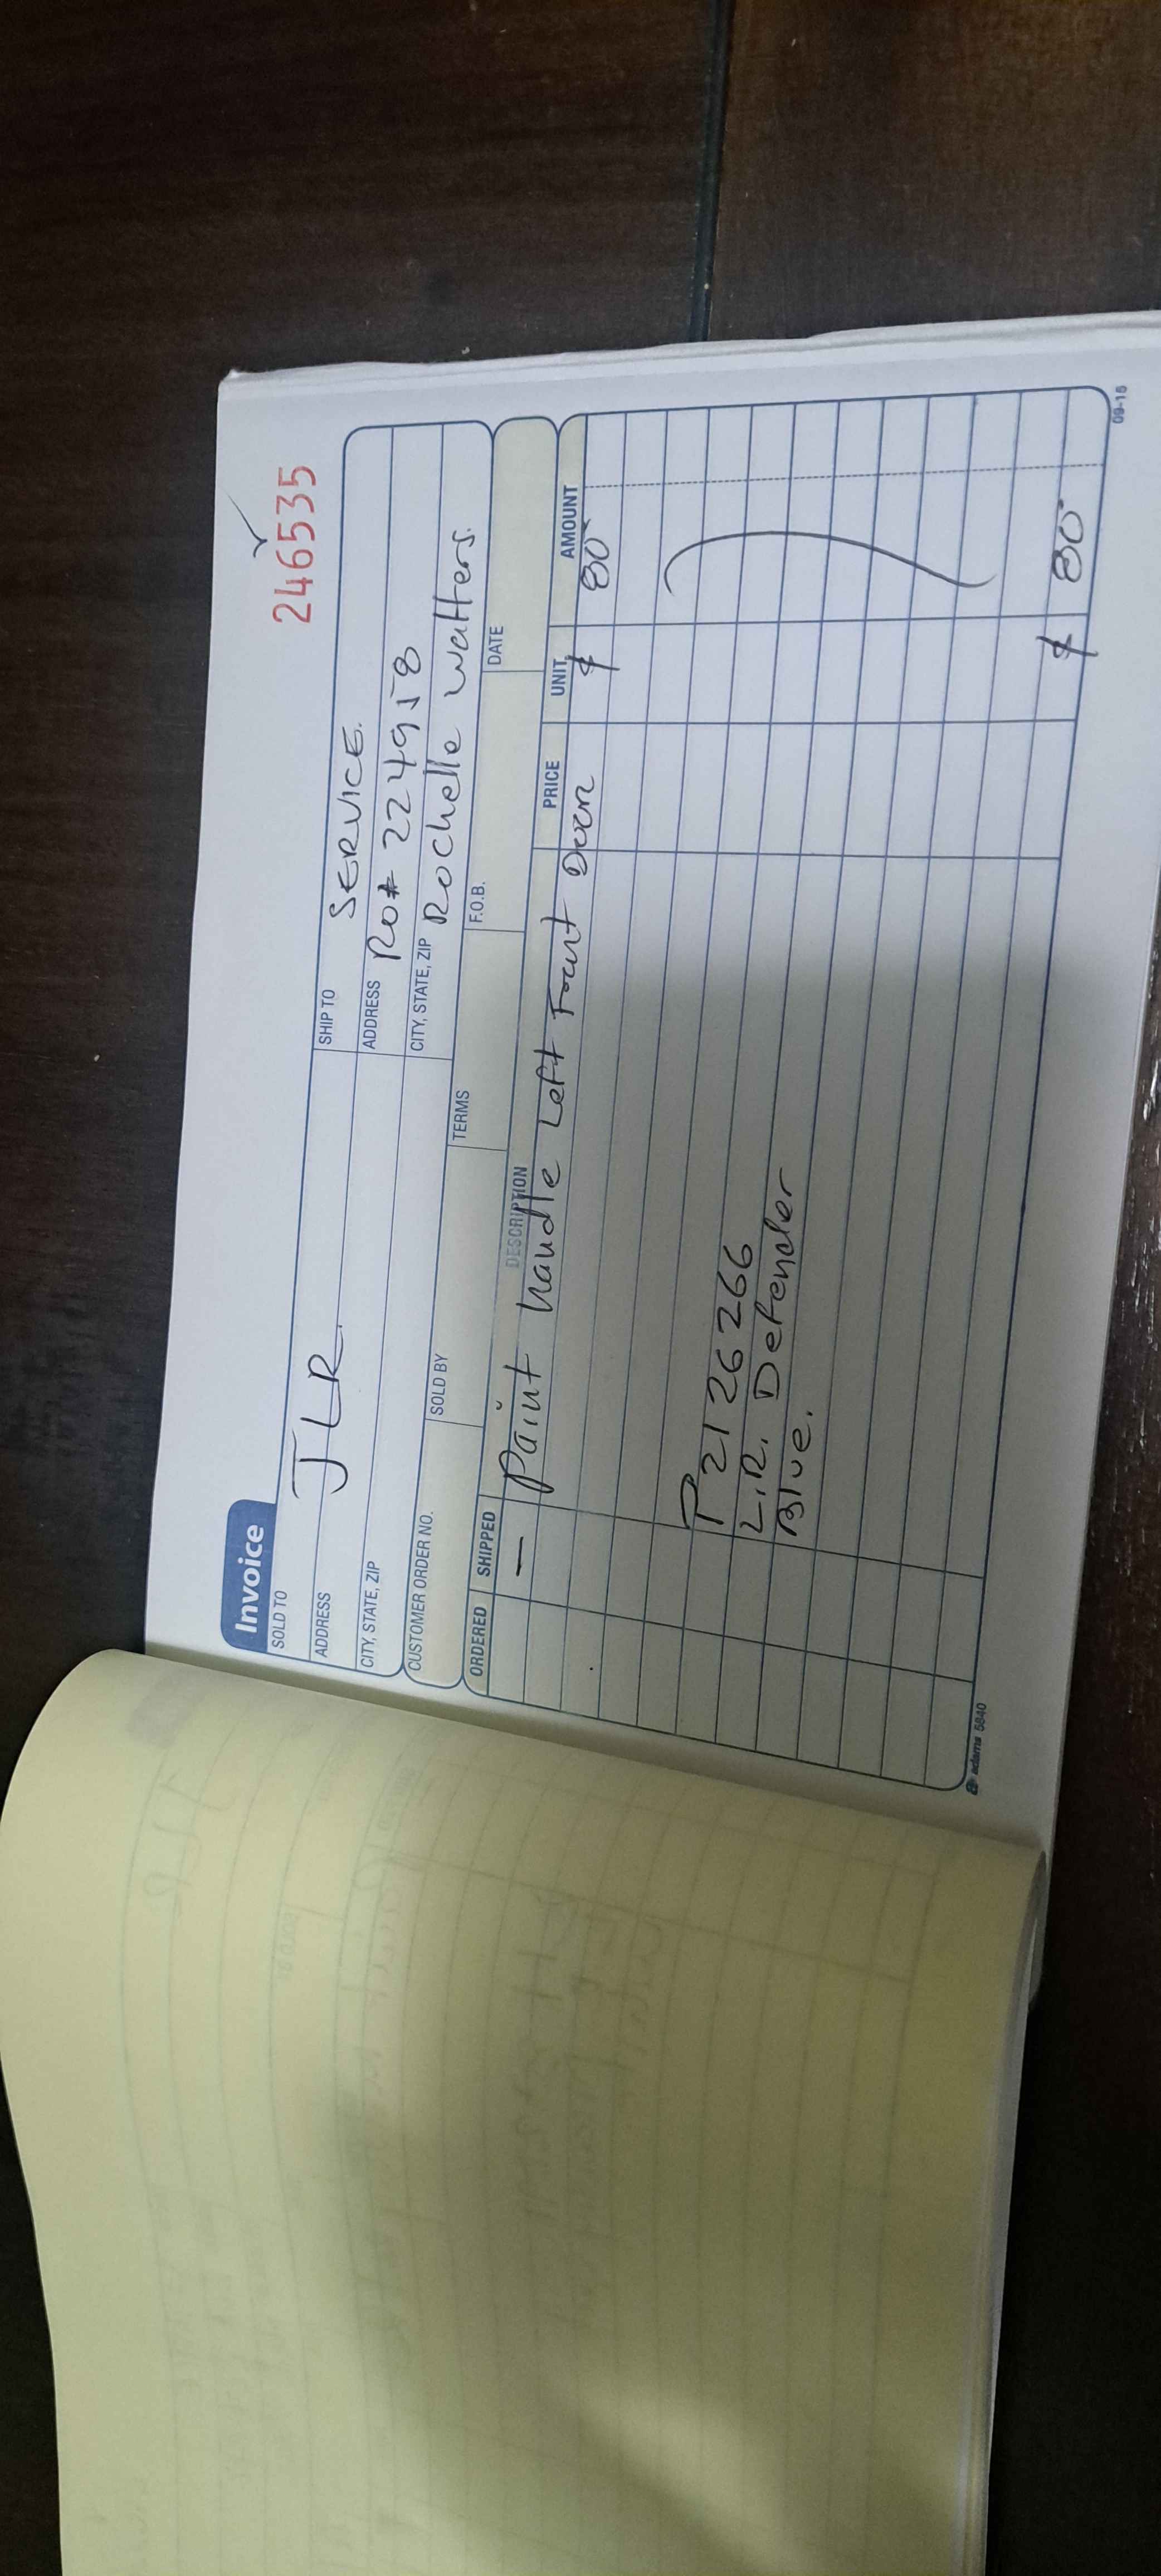 Invoice
246535
SOLD TO JLR.
SHIP TO SERVICE.
ADDRESS
ADDRESS RO# 224958
CITY, STATE, ZIP
CITY, STATE, ZIP Rochelle Watters.
CUSTOMER ORDER NO. SOLD BY TERMS F.O.B. DATE
ORDERED SHIPPED DESCRIPTION PRICE UNIT AMOUNT
— Paint handle Left Front Door $ 80
P2126266
L.R. Defender
Blue.
$ 80
adams 5840
09-15